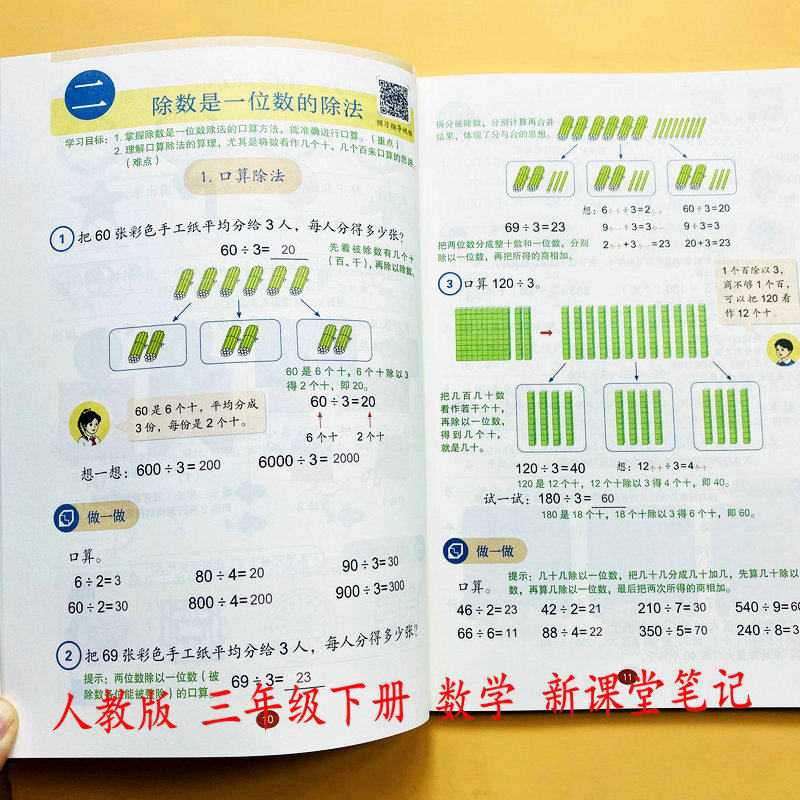 二
除数是一位数的除法
预习指导视频
学习目标：1. 掌握除数是一位数除法的口算方法，能准确进行口算。（重点）
2. 理解口算除法的算理，尤其是将数看作几个十、几个百来口算的思路。
（难点）
1. 口算除法
1 把 60 张彩色手工纸平均分给 3 人，每人分得多少张？
60÷3= 20
先看被除数有几个十
（百、千），再除以除数。
60 是 6 个十，6 个十除以 3
得 2 个十，即 20。
60 是 6 个十，平均分成
3 份，每份是 2 个十。
60÷3=20
6 个十 2 个十
想一想：600÷3=200 6000÷3=2000
做一做
口算。
6÷2=3 80÷4=20 90÷3=30
60÷2=30 800÷4=200 900÷3=300
2 把 69 张彩色手工纸平均分给 3 人，每人分得多少张？
提示：两位数除以一位数（被
除数各位能被整除）的口算。
69÷3= 23
10
拆分被除数，分别计算再合并
结果，体现了分与合的思想。
想：6个十÷3=2个十 60÷3=20
69÷3=23 9个一÷3=3个一 9÷3=3
把两位数分成整十数和一位数，分别
除以一位数，再把所得的商相加。
2个十+3个一=23 20+3=23
3 口算 120÷3。
1 个百除以 3，
商不够 1 个百，
可以把 120 看
作 12 个十。
把几百几十数
看作若干个十，
再除以一位数，
得到几个十，
就是几十。
120÷3=40 想：12个十÷3=4个十
120 是 12 个十，12 个十除以 3 得 4 个十，即 40。
试一试：180÷3= 60
180 是 18 个十，18 个十除以 3 得 6 个十，即 60。
做一做
提示：几十几除以一位数，把几十几分成几十加几，先算几十除以
数，再算几除以一位数，最后把两次所得的商相加。
口算。
46÷2=23 42÷2=21 210÷7=30 540÷9=60
66÷6=11 88÷4=22 350÷5=70 240÷8=3
11
人教版 三年级下册 数学 新课堂笔记